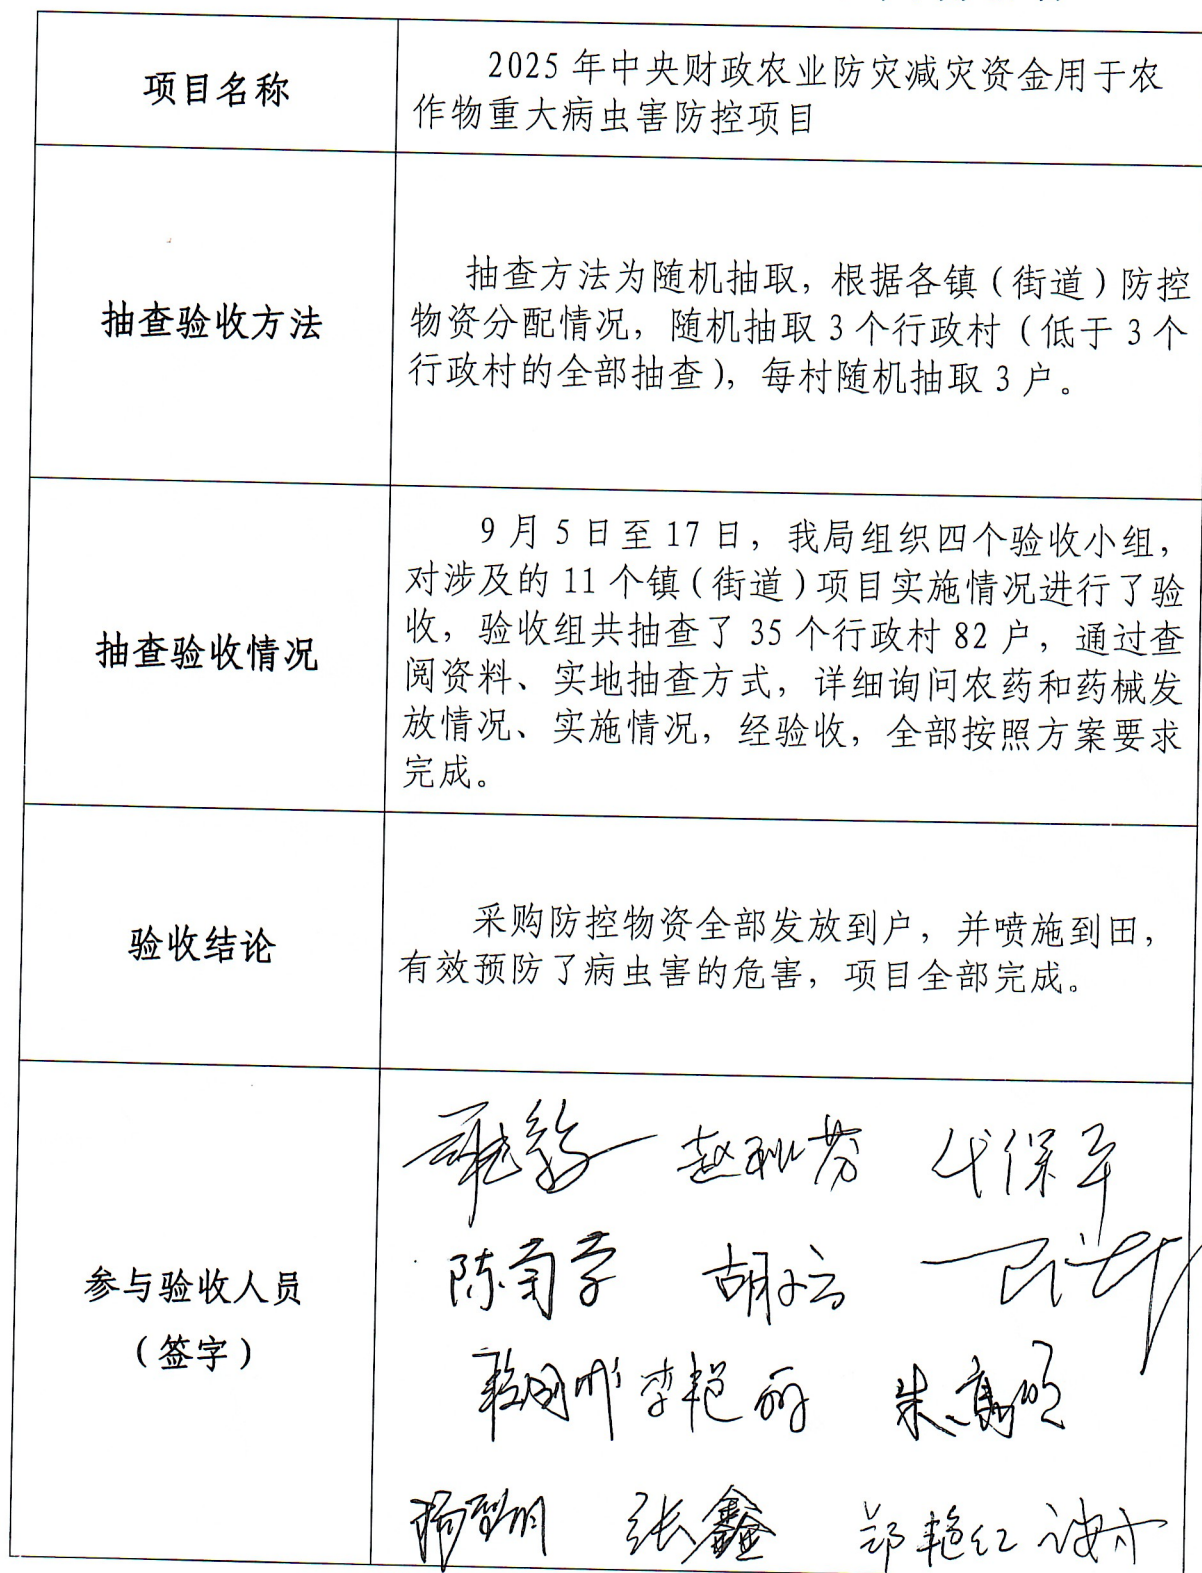 项目名称
2025年中央财政农业防灾减灾资金用于农
作物重大病虫害防控项目
抽查验收方法
抽查方法为随机抽取，根据各镇（街道）防控
物资分配情况，随机抽取3个行政村（低于3个
行政村的全部抽查），每村随机抽取3户。
抽查验收情况
9月5日至17日，我局组织四个验收小组，
对涉及的11个镇（街道）项目实施情况进行了验
收，验收组共抽查了35个行政村82户，通过查
阅资料、实地抽查方式，详细询问农药和药械发
放情况、实施情况，经验收，全部按照方案要求
完成。
验收结论
采购防控物资全部发放到户，并喷施到田，
有效预防了病虫害的危害，项目全部完成。
参与验收人员
（签字）
赵秋芬 代保平
李艳丽
张鑫 郑艳红